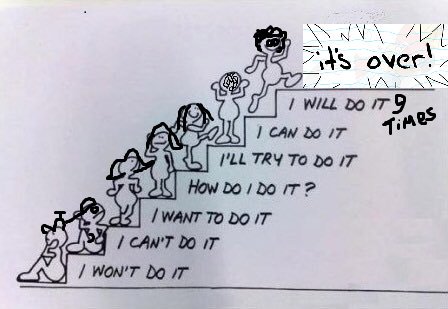 it's over!
I WILL DO IT 9
TIMES
I CAN DO IT
I'LL TRY TO DO IT
HOW DO I DO IT?
I WANT TO DO IT
I CAN'T DO IT
I WON'T DO IT